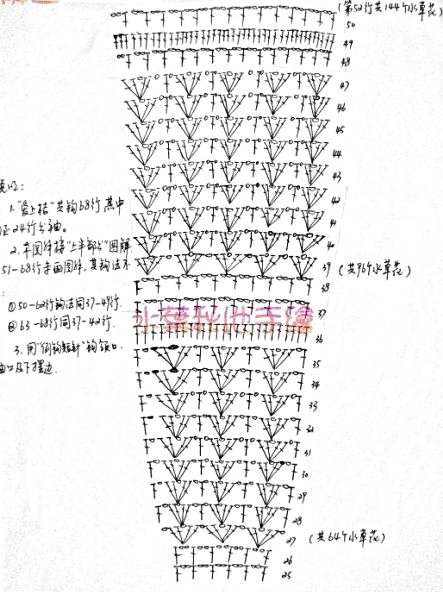 (第52行共144个水草花)
50
49
48
47
46
45
44
43
42
41
40
39 (共96个水草花)
38
37
36
35
34
33
32
31
30
29
28
27 (共64个水草花)
26
25
1. "爱上桔"共钩68行,其中
24行分袖。
2. 本图解接"上半部分"图解
51-68行未画图解,其钩法不
:
①50-62行钩法同37-49行.
②63-68行同37-42行.
3. 用"倒钩短针"钩领口、
袖口及下摆边.